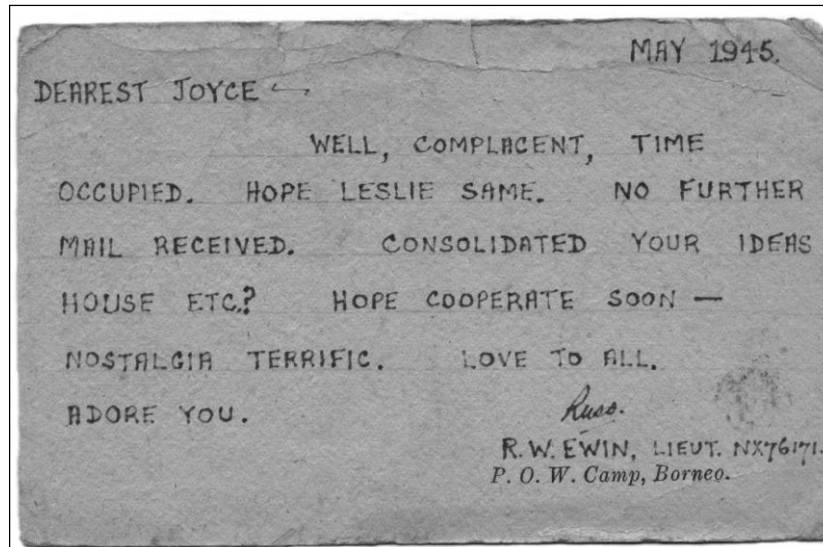 MAY 1945.
DEAREST JOYCE –
WELL, COMPLACENT, TIME
OCCUPIED. HOPE LESLIE SAME. NO FURTHER
MAIL RECEIVED. CONSOLIDATED YOUR IDEAS
HOUSE ETC.? HOPE COOPERATE SOON —
NOSTALGIA TERRIFIC. LOVE TO ALL.
ADORE YOU. Russ.
R.W. EWIN, LIEUT. NX76171.
P. O. W. Camp, Borneo.